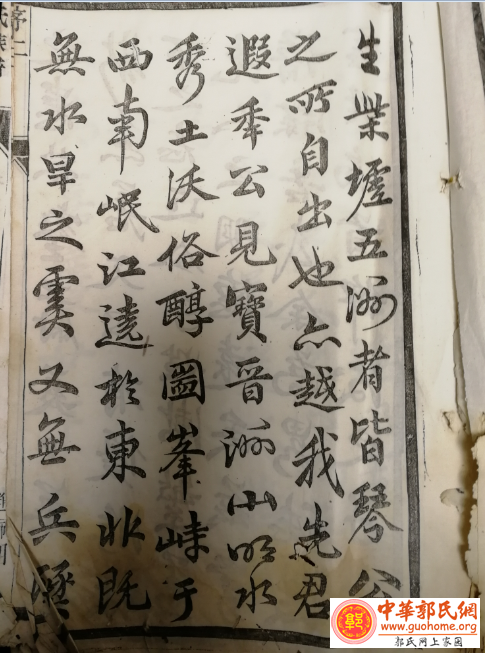 生柴墟五洲者皆琴公
之所自出也亦越我先君
遐秊公見寶晉洲山明水
秀土沃俗醇圌峯峙于
西南岷江遶於東北既
無水旱之虞又無兵燹
序二
中華郭氏網
www.guohome.org
郭氏网上家園